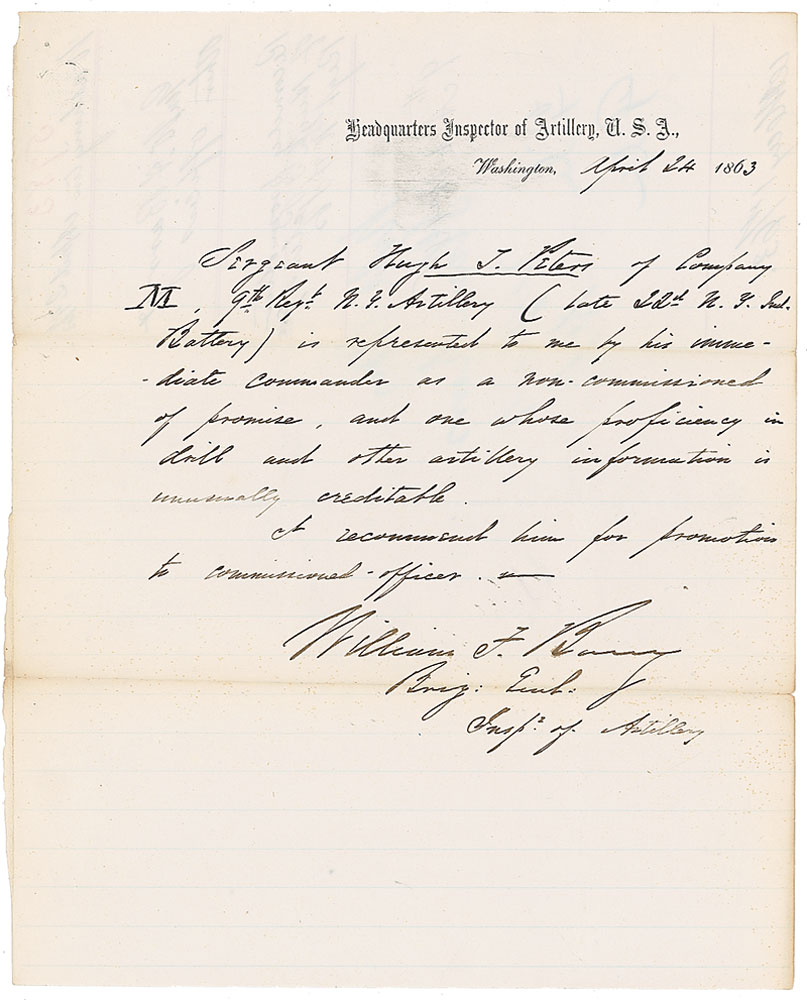 Headquarters Inspector of Artillery, U. S. A.,
Washington, April 24 1863
Sergeant Hugh T. Peters of Company
M, 9th Regt. N. Y. Artillery (late 22d N. Y. Ind.
Battery) is represented to me by his imme-
-diate commander as a non-commissioned
of promise, and one whose proficiency in
drill and other artillery information is
unusually creditable.
I recommend him for promotion
to commissioned-officer.
William F. Barry
Brig: Genl.
Inspr. of Artillery